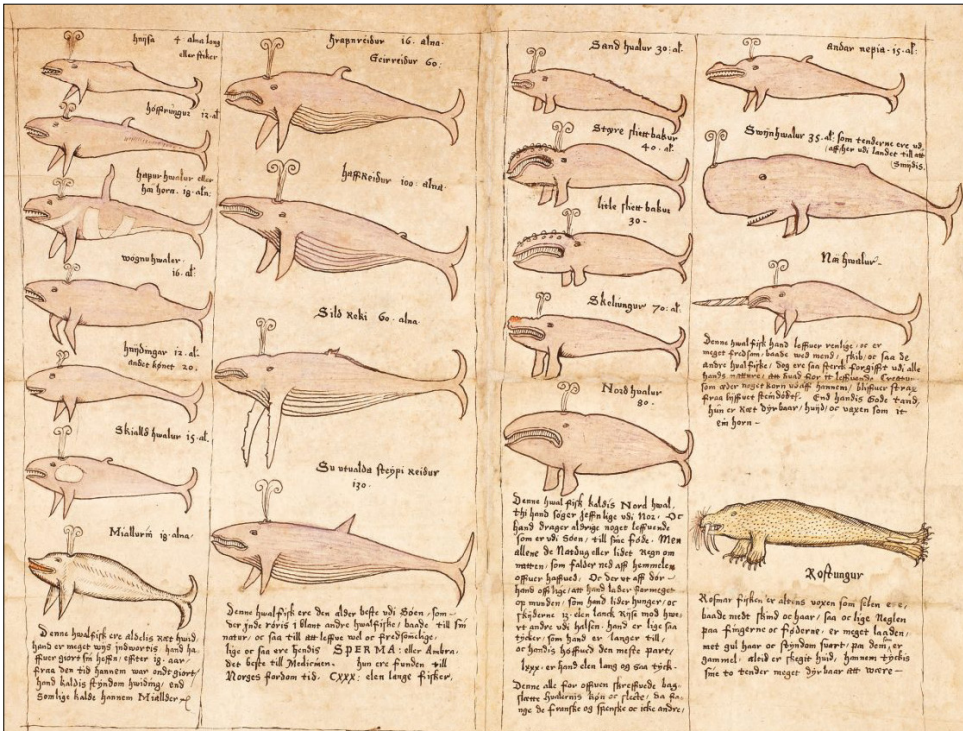 hnijsa 4 alna long
eller stiker
höffrúngur 12 al
hapur hwalur eller
hai horn. 18. alna.
wognuhwaler.
16. al
hnijdingar 12. al.
andet kønet 20.
Skialld hwalur 15. al.
Miallurin 18. alna.
Denne hwalfisk ere aldelis ræt hwid,
hand er meget wijs indwortis hand ha-
ffuer giort sin heffn, effter 18. aar,
fraa den tid hannem war ondt giort,
hand kaldis støndom hwiding, end
somlige kalde hannem Miallder
hrapnreidur 16. alna.
Geirreidur 60:
haffReidur 100: alna.
Sild Reki 60. alna.
Su utualda steypi Reidur
130.
Denne hwalfisk ere den alder beste udi Søen, som-
der inde røris i blant andre hwalfiske, baade till sin
natur, oc saa till att leffue wel oc fredsomelige,
lige oc saa ere hendis SPERMA: eller Ambra.
det beste till Medicinen. hun ere funden till
Norges fordom tid. CXXX: elen lange fisker,
Sand hualur 30: al.
Større slettbakur
40. al.
litle slett bakur
30.
Skeliungur 70: al.
Nord hualur
80.
Denne hwal fisk kaldis Nord hwal,
thi hand søger jeffnlige udi Nor. Oc
hand drager aldrige noget leffuende
som er udi Søen, till sine føde. Men
allene de Natdug eller lidet Regn om
natten, som falder ned aff hemmelen
offuer haffued. Oc der ut aff dør
hand offilige, att hand lader for meget
op munden, som hand lider hunger, oc
skijderne 12. elen lanck Rijse mod hwe-
rt andre udi halsen. hand er lige saa
tycker, som hand er langer till,
oc handis höffued den meste part,
lxxx. er hand elen lang oc saa tyck.
Denne alle for offuen skreffuede bag-
slætte hualernis køn oc slecte, da fa-
nge de franske og spenske oc icke andre,
Andar nepia. 15. al:
Swijnhwalur 35. al. som tenderne ere ud,
aff her udi landet till att
Smijdis.
Na hwalur
Denne hwal fisk hand leffuer renlige, oc er
meget fredsam, baade wed mend, skib, oc saa de
andre hwalfiske, dog ere saa sterck forgifft udi alle
hands nature, att huad for it leffuende Creatur
som æder noget korn uoaff hannem, bliffuer strax
fraa lijffuet stendødt. End handis Gode tand,
hun er Ræt dyrbaar, huijd, oc vaxen som it
em horn
Rostungur
Rosmar fisken er altens voxen som selen ere,
baade medt skind oc haar, saa oc lige Neglen
paa fingerne oc føderne. er meget laaden,
met gul haar oc støndom svart, paa dem, som er
gammel, altid er skegit huid, hannem tyckis
sine to tender meget dyrbaar att wære